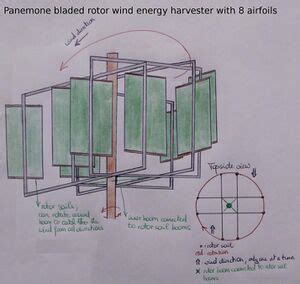 Panemone bladed rotor wind energy harvester with 8 airfoils
wind direction
Topside view
rotor sails,
can rotate around
boom to catch the
wind from all directions
boom connected
to rotor sail booms
• rotor sail
rotation
wind direction, only one at a time
rotor boom connected to rotor sail
booms